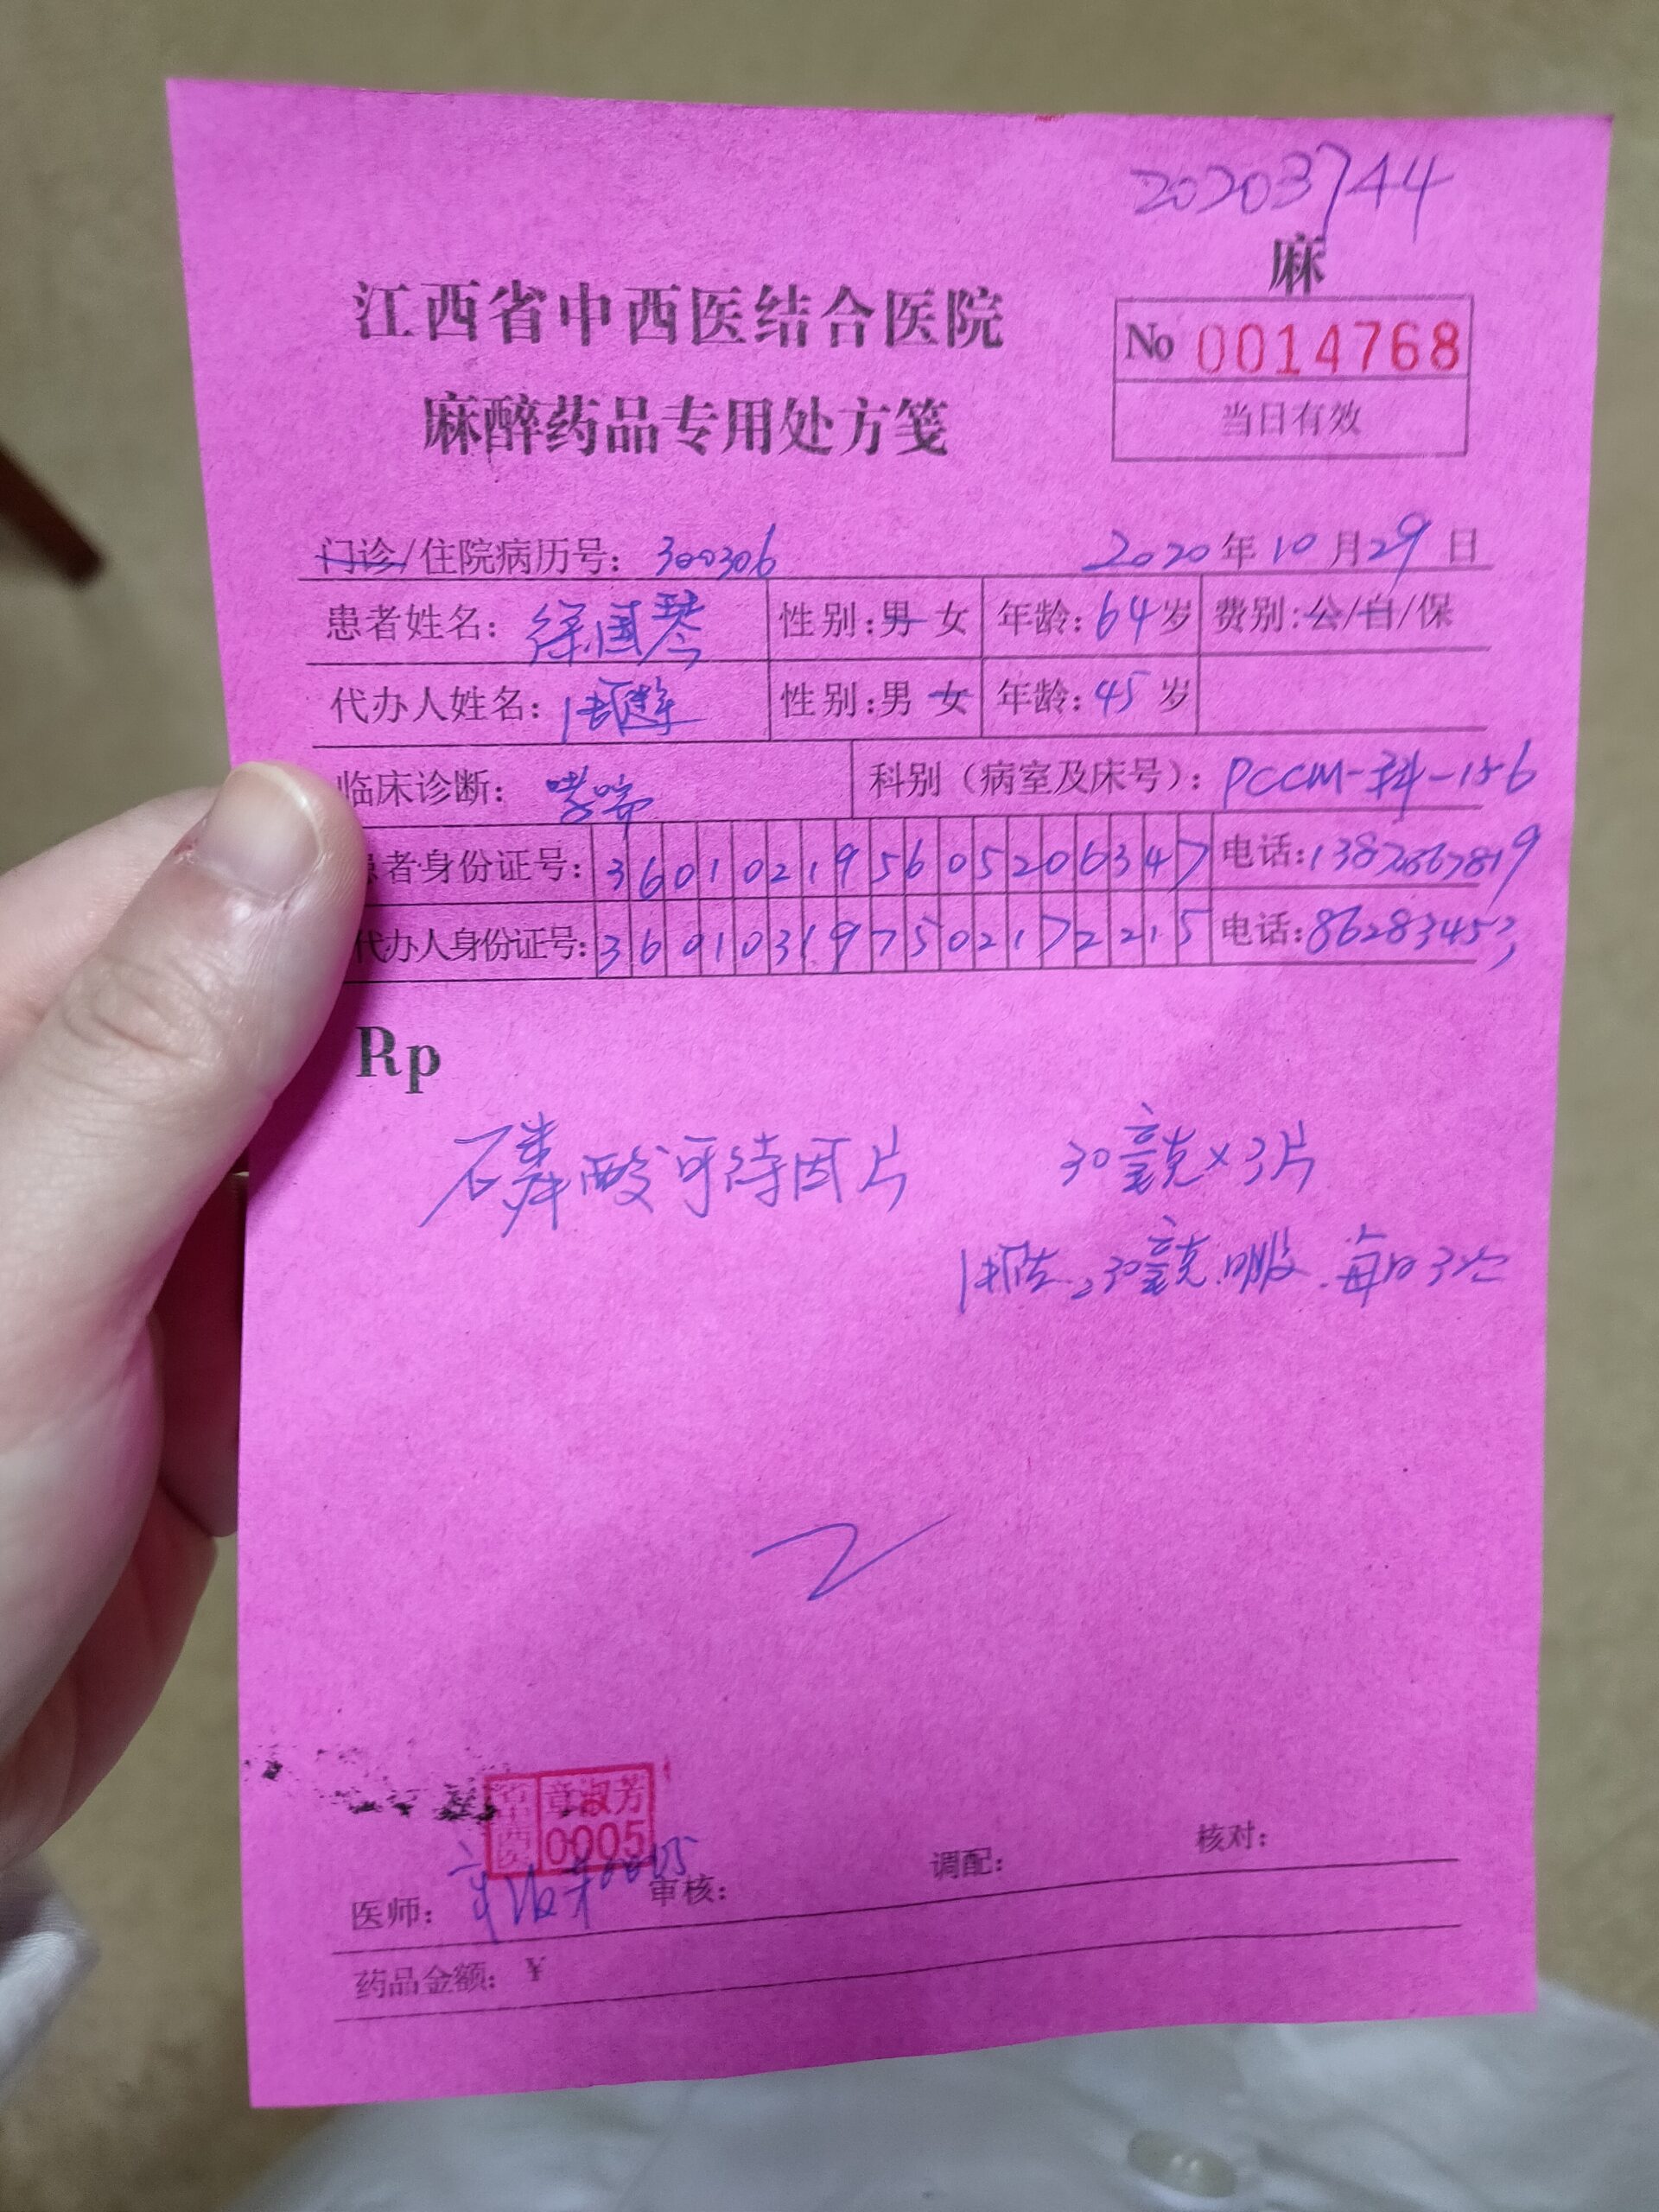 20203744
麻
江西省中西医结合医院
No 0014768
麻醉药品专用处方笺
当日有效
门诊/住院病历号: 300306 2020年10月29日
患者姓名: 徐国琴 性别:男 女 年龄:64岁 费别:公/自/保
代办人姓名: 性别:男 女 年龄:45岁
临床诊断: 哮喘 科别(病室及床号): PCCM-科-156
患者身份证号: 360102195605206347 电话:
代办人身份证号: 360103197502172215 电话:
Rp
磷酸可待因片 30毫克×3片
用法:30毫克.口服.每日3次
章淑芳
0005
医师: 章淑芳0005 审核: 调配: 核对:
药品金额: ¥